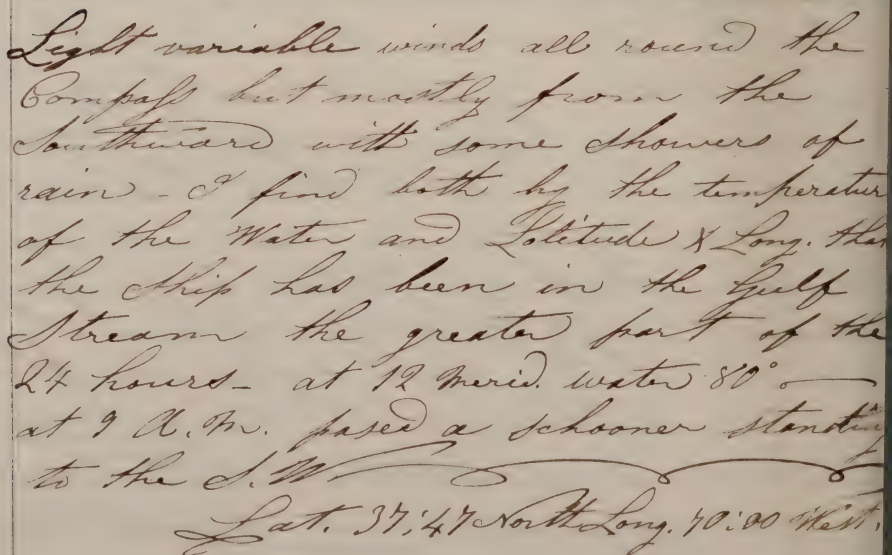 Light variable winds all round the
Compass but mostly from the
Southward with some showers of
rain - I find both by the temperatur
of the Water and Latitude & Long. that
the Ship has been in the Gulf
Stream the greater part of the
24 hours - at 12 Merid. water 80°
at 9 A.M. pased a schooner standing
to the S.W
Lat. 37:47 North Long. 70:00 West.